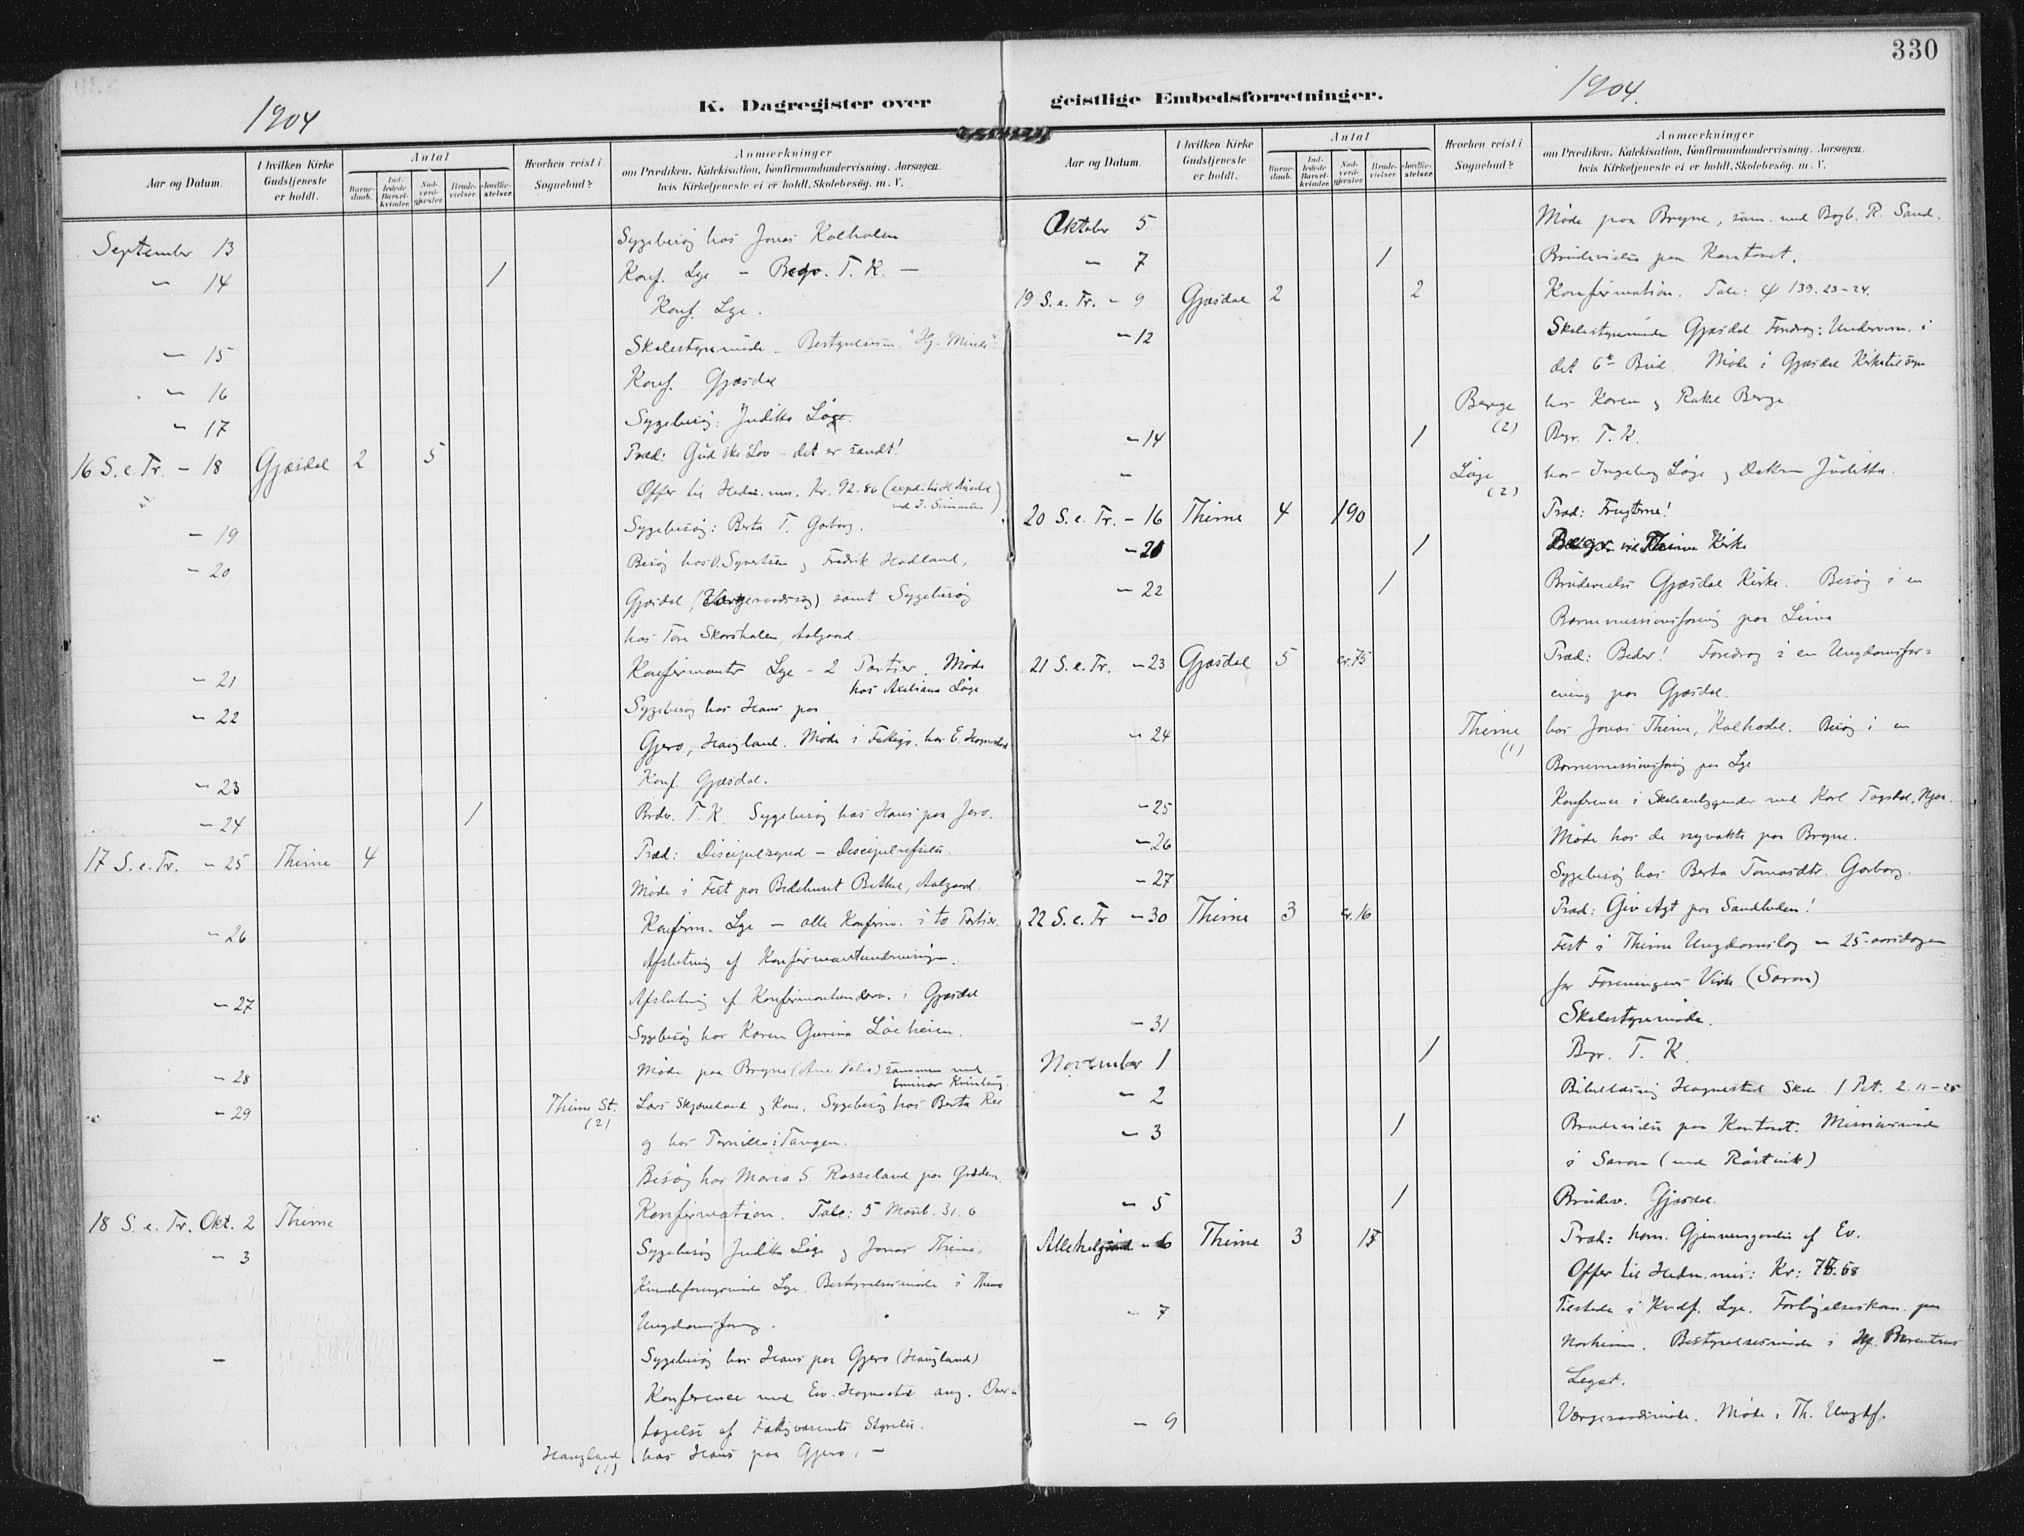 330
1904
K. Dagregister over
geistlige Embedsforretninger.
1904.
Aar og Datum.
I hvilken Kirke Gudstjeneste er holdt.
Antal
Barne-daab.
Ind-ledede Barsel-kvinder.
Nad-verd-gjæster.
Brude-vielser.
Jordfæ-stelser.
Hvorhen reist i Sognebud?
Anmærkninger
om Prædiken, Katekisation, Konfirmandundervisning, Aarsagen,
hvis Kirketjeneste ei er holdt, Skolebesøg, m. V.
September 13 Sygebesøg hos Jonas Kalhalen
" 14 1 Konf. Lye - Begr. T. K. -
Konf. Lye.
" 15 Skolestyremøde. Bestyrelsesm.
" 16 Konf. Gjæsdal
" 17 Sygebesøg: Juditha Løge.
16 S. e. Tr. - 18 Gjæsdal 2 5 Præd: Gud ske Lov - det er sandt!
Offer til Hedn. mis. Kr. 92.86
- 19 Sygebesøg: Berta T. Garborg.
- 20 Besøg hos O. Syvertsen og Fredrik Hadland,
Gjæsdal samt Sygebesøg
hos Tore Skorshalen, Aalgaard.
- 21 Konfirmanter Lye - 2 Partier. Møde
hos Axeliana Løge
- 22 Sygebesøg hos Hans paa
Gjero, Haugland. Møde i
- 23 Konf. Gjæsdal.
- 24 1 Brdv. T. K. Sygebesøg hos Hans paa Jero.
17 S. e. Tr. - 25 Thime 4 Præd: Discipelsynd - Discipelrefselse.
Møde i Fest paa Bedehuset Bethel, Aalgaard.
- 26 Konfirm. Lye - alle Konfirm. i to Partier.
Afslutning af Konfirmantundervisningen.
- 27 Afslutning af Konfirmantunderv. i Gjæsdal
Sygebesøg hos Karen Gurina Løeheien.
- 28 Møde paa Bryne sammen med
- 29 Thime St. (2) Lars Skjæveland og Kone. Sygebesøg hos Berta Ree
og hos i Tangen.
Besøg hos Maria S. Rosseland paa
18 S. e. Tr. Okt. 2 Thime Konfirmation. Tale: 5 Moseb. 31. 6
- 3 Sygebesøg Juditha Løge og Jonas Thime.
Kvindeforeningsmøde Lye. Bestyrelsesmøde i Thime
Ungdomsforng.
- Sygebesøg hos Hans paa Gjero (Haugland)
Konference med Ev. Hognestad ang. Over-
tagelse af Styrelse.
Haugland (1) hos Hans paa Gjero. -
Aar og Datum.
I hvilken Kirke Gudstjeneste er holdt.
Antal
Barne-daab.
Ind-ledede Barsel-kvinder.
Nad-verd-gjæster.
Brude-vielser.
Jordfæ-stelser.
Hvorhen reist i Sognebud?
Anmærkninger
om Prædiken, Katekisation, Konfirmandundervisning, Aarsagen,
hvis Kirketjeneste ei er holdt, Skolebesøg, m. V.
Oktober 5 Møde paa Bryne, sam. med R. Sand.
" 7 1 Brudevielse paa Kontoret.
19 S. e. Tr. - 9 Gjæsdal 2 2 Konfirmation. Tale: ψ 139. 23-24.
- 12 Skolestyremøde Gjæsdal Foredrag: Undervisn. i
det 6te Bud. Møde i Gjæsdal Kirketilsyn
Berge (2) hos Karen og Rakel Berge.
- 14 1 Begr. T. K.
- Løge (2) hos Ingeborg Løge og Juditha.
20 S. e. Tr. - 16 Thime 4 190 Præd: Frugterne!
- 21 1 Begr. ved Thime Kirke
- 22 1 Brudevielse Gjæsdal Kirke. Besøg i en
Barnemissionsforng paa Lima
21 S. e. Tr. - 23 Gjæsdal 5 cr. 75 Præd: Beder! Foredrag i en Ungdomsfor-
ening paa Gjæsdal.
- 24 Thime (1) hos Jonas Thime, Kalhodel. Besøg i en
Barnemissionsforng paa Lye
- 25 Konference i Skoleanliggender med Karl
- 26 Møde hos de nyvakte paa Bryne.
- 27 Sygebesøg hos Berta Tomasdtr. Garborg.
22 S. e. Tr - 30 Thime 3 cr. 16 Præd: Giv Agt paa Sandheden!
Fest i Thime Ungdomslag - 25-aarsdagen
for Foreningens Virke (Saron)
- 31 Skolestyremøde.
November 1 1 Begr. T. K.
- 2 Bibellæsning Hognestad Skole 1 Pet. 2. 11-25
- 3 1 Brudevielse paa Kontoret. Missionsmøde
i Saron (med Råstvik)
- 5 1 Brudev. Gjæsdal.
Allehelgensd - 6 Thime 3 Præd: hom. Gjennemgaaelse af Ev.
Offer til Hedn. mis: Kr:
- 7 Tilstede i Kvdf. Lye. Forligelseskom. paa
Norheim. Bestyrelsesmøde i
Legat.
- 9 Værgeraadsmøde. Møde i Th. Ungdf.